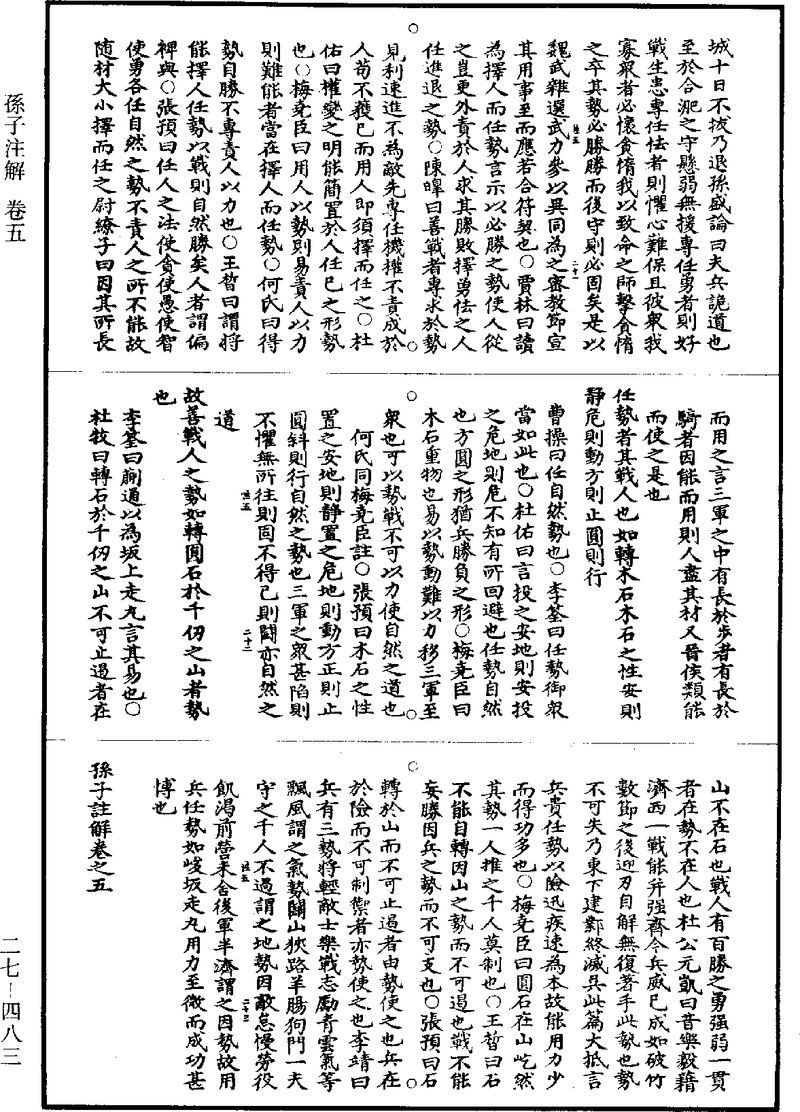 孫子注解　卷五
城十日不拔乃退孫盛論曰夫兵詭道也
至於合淝之守懸弱無援專任勇者則好
戰生患專任怯者則懼心難保且彼衆我
寡衆者必懷貪惰我以致命之師擊貪惰
之卒其勢必勝勝而後守則必固矣是以
魏武雜選武力參以異同為之密教節宣
其用事至而應若合符契也○賈林曰讀
為擇人而任勢言示以必勝之勢使人從
之豈更外責於人求其勝敗擇勇怯之人
任進退之勢○陳皥曰善戰者專求於勢
見利速進不為敵先專任機權不責成於
人苟不獲已而用人即須擇而任之○杜
佑曰權變之明能簡置於人任己之形勢
也○梅堯臣曰用人以勢則易責人以力
則難能者當在擇人而任勢○何氏曰得
勢自勝不專責人以力也○王晳曰謂將
能擇人任勢以戰則自然勝矣人者謂偏
裨與○張預曰任人之法使貪使愚使智
使勇各任自然之勢不責人之所不能故
隨材大小擇而任之尉繚子曰因其所長
而用之言三軍之中有長於步者有長於
騎者因能而用則人盡其材又晉侯類能
而使之是也
任勢者其戰人也如轉木石木石之性安則
靜危則動方則止圓則行
曹操曰任自然勢也○李筌曰任勢御衆
當如此也○杜佑曰言投之安地則安投
之危地則危不知有所回避也任勢自然
也方圓之形猶兵勝負之形○梅堯臣曰
木石重物也易以勢動難以力移三軍至
衆也可以勢戰不可以力使自然之道也
何氏同梅堯臣註○張預曰木石之性
置之安地則靜置之危地則動方正則止
圓斜則行自然之勢也三軍之衆甚陷則
不懼無所往則固不得已則鬬亦自然之
道
故善戰人之勢如轉圓石於千仞之山者勢
也
李筌曰蒯通以為坂上走丸言其易也○
杜牧曰轉石於千仞之山不可止遏者在
山不在石也戰人有百勝之勇强弱一貫
者在勢不在人也杜公元凱曰昔樂毅藉
濟西一戰能并强齊今兵威已成如破竹
數節之後迎刃自解無復著手此勢也勢
不可失乃東下建鄴終滅吳此篇大抵言
兵貴任勢以險迅疾速為本故能用力少
而得功多也○梅堯臣曰圓石在山屹然
其勢一人推之千人莫制也○王晳曰石
不能自轉因山之勢而不可遏也戰不能
妄勝因兵之勢而不可支也○張預曰石
轉於山而不可止遏者由勢使之也兵在
於險而不可制禦者亦勢使之也李靖曰
兵有三勢將輕敵士樂戰志勵青雲氣等
飄風謂之氣勢關山狹路羊腸狗門一夫
守之千人不過謂之地勢因敵怠慢勞役
飢渴前營未舍後軍半濟謂之因勢故用
兵任勢如峻坂走丸用力至微而成功甚
博也
孫子註解卷之五
二七-四八三